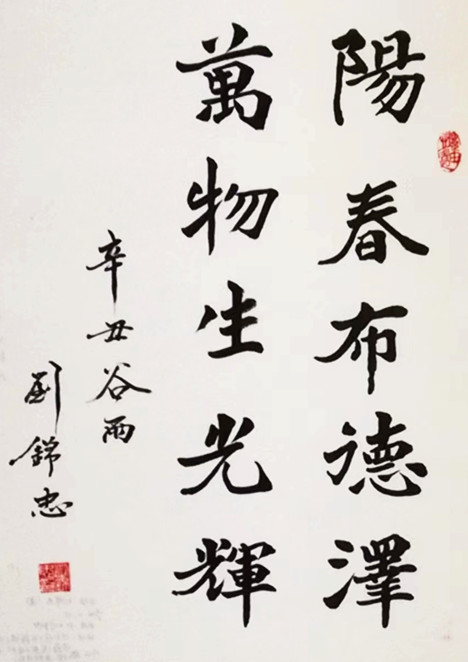 陽春布德澤
萬物生光輝
辛丑谷雨
劉錦忠